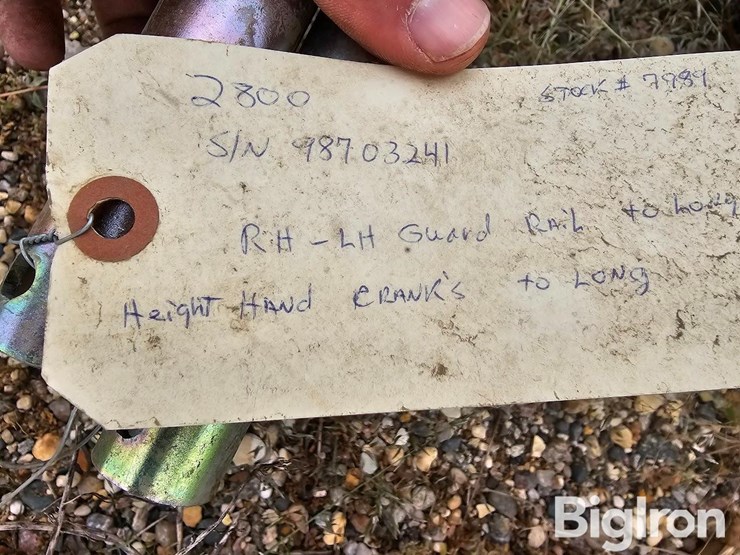 2800
STOCK # 7989
S/N 98703241
RH - LH Guard RAiL to LONg
HeigHT HANd CRANK's to LONg
BigIron